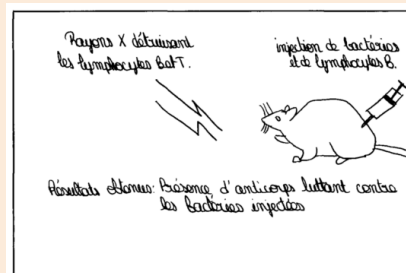 Rayons X détruisant
les lymphocytes B et T.
injection de bactéries
et de lymphocytes B.
Résultats obtenus: Présence d'anticorps luttant contre
les bactéries injectées